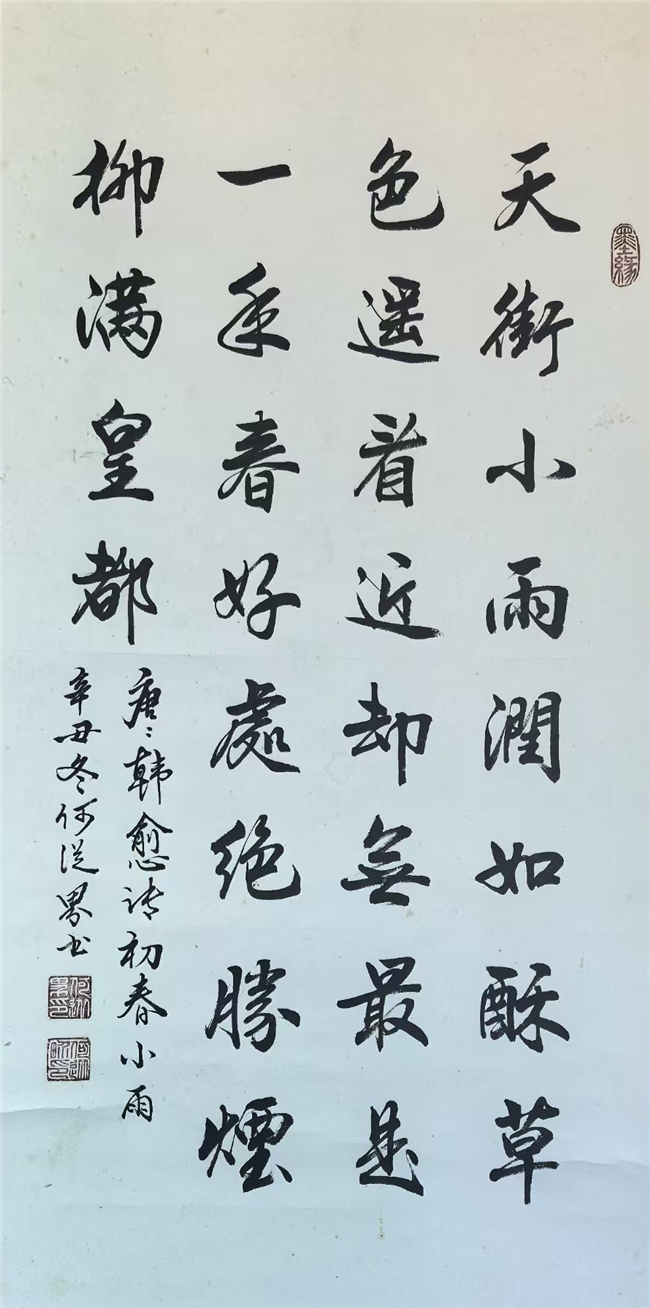 墨緣
天街小雨潤如酥草
色遥看近却無最是
一年春好處绝勝煙
柳满皇都
唐〻韩愈诗初春小雨
辛丑冬何從界书